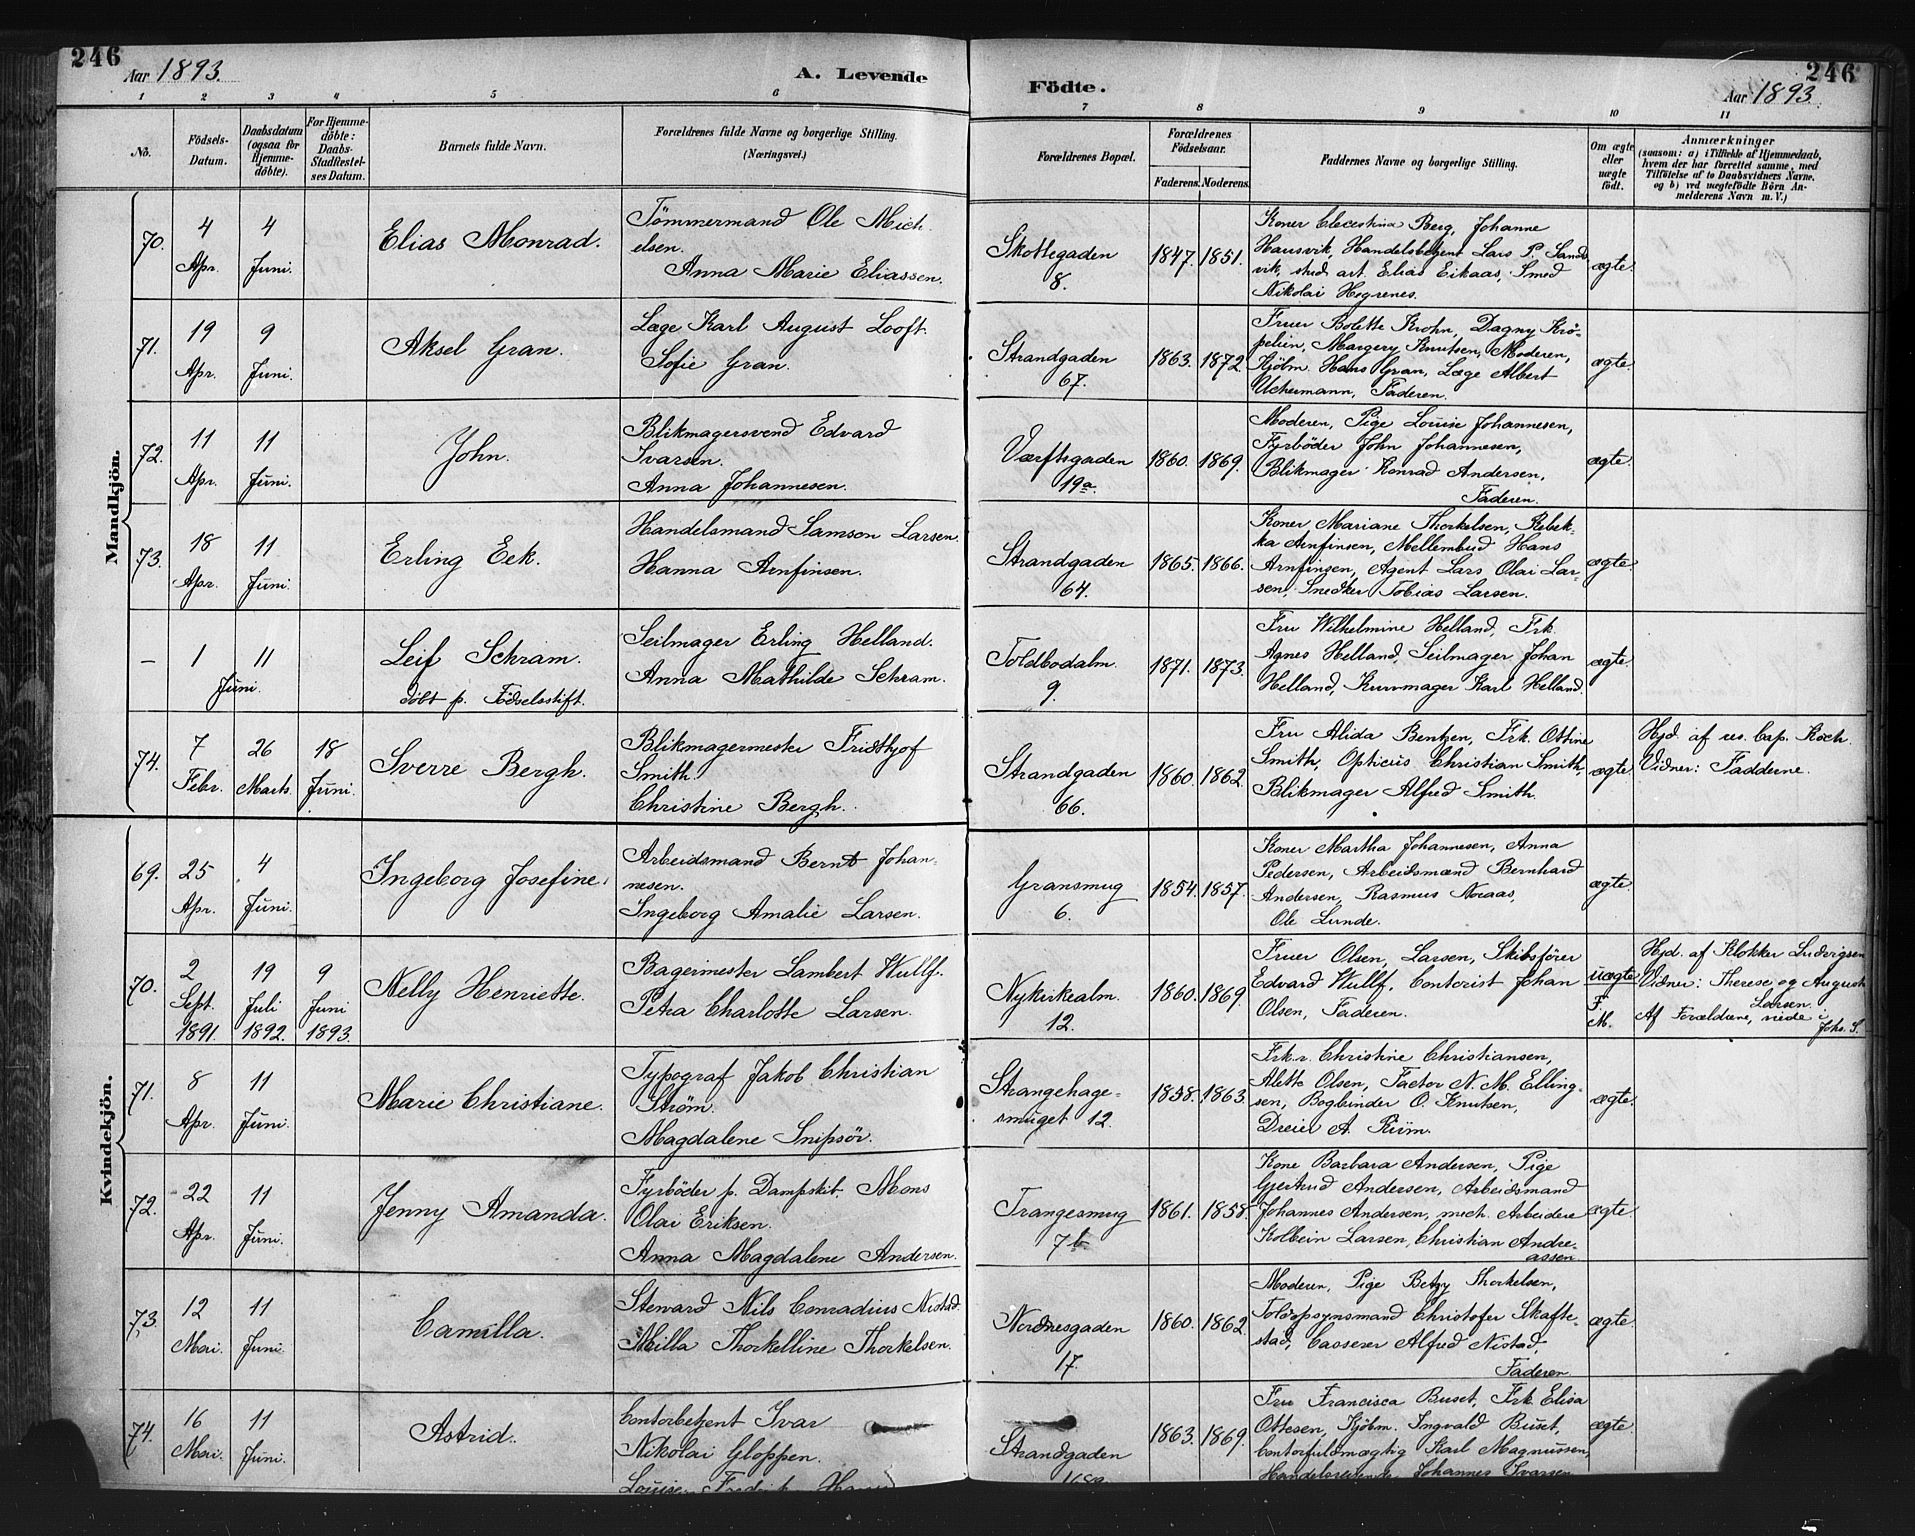 246
Aar 1893.
A. Levende
Födte.
246
Aar 1893.
1 2 3 4 5 6 7 8 9 10 11
No.
Födsels-
Datum.
Daabsdatum
(ogsaa for
Hjemme-
döbte).
For Hjemme-
döbte:
Daabs-
Stadfæstel-
ses Datum.
Barnets fulde Navn.
Forældrenes fulde Navne og borgerlige Stilling.
(Næringsvei.)
Forældrenes Bopæl.
Forældrenes
Födselsaar.
Faderens. Moderens.
Faddernes Navne og borgerlige Stilling.
Om ægte
eller
uægte
födt.
Anmærkninger
(saasom: a) i Tilfælde af Hjemmedaab,
hvem der har forrettet samme, med
Tilföielse af to Daabsvidners Navne,
og b) ved uægtefödte Börn An-
melderens Navn m. V.)
Mandkjön.
70.
4
Apr.
4
Juni.
Elias Monrad.
Tömmermand Ole Mich
elsen.
Anna Marie Eliassen.
Skottegaden
8.
1847. 1851.
Koner Elecestina Berg, Johanne
Hansvik, Handelsbetjent Lars P. Sand
vik, stud. art. Elias Eikaas, Smed
Nikolai Hogrenes.
ægte.
71.
19
Apr.
9
Juni.
Aksel Gran.
Læge Karl August Looft.
Sofie Gran.
Strandgaden
67.
1863. 1872.
Fruer Bolette Krohn, Dagny Krö-
pelin, Margery Knutsen, Moderen,
Kjöbm. Hans Gran, Læge Albert
Uchermann, Faderen.
ægte.
72.
11
Apr.
11
Juni.
John.
Blikmagersvend Edvard
Ivarsen.
Anna Johannesen.
Værftsgaden
19a.
1860. 1869.
Moderen, Pige Louise Johannesen,
Fyrböder John Johannesen,
Blikmager Konrad Andersen,
Faderen.
ægte.
73.
18
Apr.
11
Juni.
Erling Eek.
Handelsmand Samson Larsen.
Hanna Arnfinsen.
Strandgaden
64.
1865. 1866.
Koner Mariane Thorkelsen, Rebek-
ka Arnfinsen, Mellembud Hans
Arnfinsen, Agent Lars Olai Lar-
sen, Snedker Tobias Larsen.
ægte.
–
1
11
Juni.
Leif Schram.
döbt p. Födselsstift.
Seilmager Erling Helland.
Anna Mathilde Schram.
Toldbodalm.
9.
1871. 1873.
Fru Wilhelmine Helland, Frk.
Agnes Helland, Seilmager Johan
Helland, Kurvmager Karl Helland.
ægte.
74.
7
Febr.
26
Marts.
18
Juni.
Sverre Bergh.
Blikmagermester Fridthjof
Smith.
Christine Bergh.
Strandgaden
66.
1860. 1862.
Fru Alida Bentzen, Frk. Ottine
Smith, Opticus Christian Smith,
Blikmager Alfred Smith.
ægte.
Hjd. af res. Cap. Koch.
Vidner: Fadderne.
Kvindekjön.
69.
25
Apr.
4
Juni.
Ingeborg Josefine.
Arbeidsmand Bernt Johan-
nesen.
Ingeborg Amalie Larsen.
Gransmug
6.
1854. 1857.
Koner Martha Johannesen, Anna
Pedersen, Arbeidsmænd Bernhard
Andersen, Rasmus Noraas,
Ole Lunde.
ægte.
70.
2
Sept.
1891.
19
Juli
1892.
9
Juni
1893.
Nelly Henriette.
Bagermester Lambert Wullf.
Petra Charlotte Larsen.
Nykirkealm.
12.
1860. 1869.
Fruer Olsen, Larsen, Skibsfører
Edvard Wullf, Contorist Johan
Olsen, Faderen.
uægte
F.
M.
Hjd. af Klokker Ludvigsen
Vidner: Therese og August
Larsen.
Af Forældrene, viede i
Johs. S.
71.
8
Apr.
11
Juni.
Marie Christiane.
Typograf Jakob Christian
Ström.
Magdalene Snipsör.
Strangehage-
smuget 12.
1858. 1863.
Frk.r. Christine Christiansen,
Alette Olsen, Factor N. M. Elling-
sen, Bogbinder O. Knutsen,
Dreier A. Riim.
ægte.
72.
22
Apr.
11
Juni.
Jenny Amanda.
Fyrböder p. Dampskib Mons
Olai Eriksen.
Anna Magdalene Andersen.
Trangesmug
7b
1861. 1858.
Kone Barbara Andersen, Pige
Gjertrud Andersen, Arbeidsmand
Johannes Andersen, mech. Arbeidere
Kolbein Larsen, Christian Andre-
assen
ægte.
73.
12
Mai.
11
Juni.
Camilla.
Steward Nils Conradius Nistad.
Milla Thorkelline Thorkelsen.
Nordnesgaden
17.
1860. 1862.
Moderen, Pige Betzy Thorkelsen,
Toldopsynsmand Christofer Skafte-
stad, Casserer Alfred Nistad,
Faderen
ægte.
74.
16
Mai.
11
Juni.
Astrid.
Contorbetjent Ivar
Nikolai Gloppen.
Louise
Strandgaden
1863. 1869.
Fru Francisca Buset, Frk. Elisa
Ottesen, Kjöbm. Ingvald Buset,
Contorfuldmægtig Karl Magnussen,
Handelsreisende Johannes Ivarsen
ægte.
5